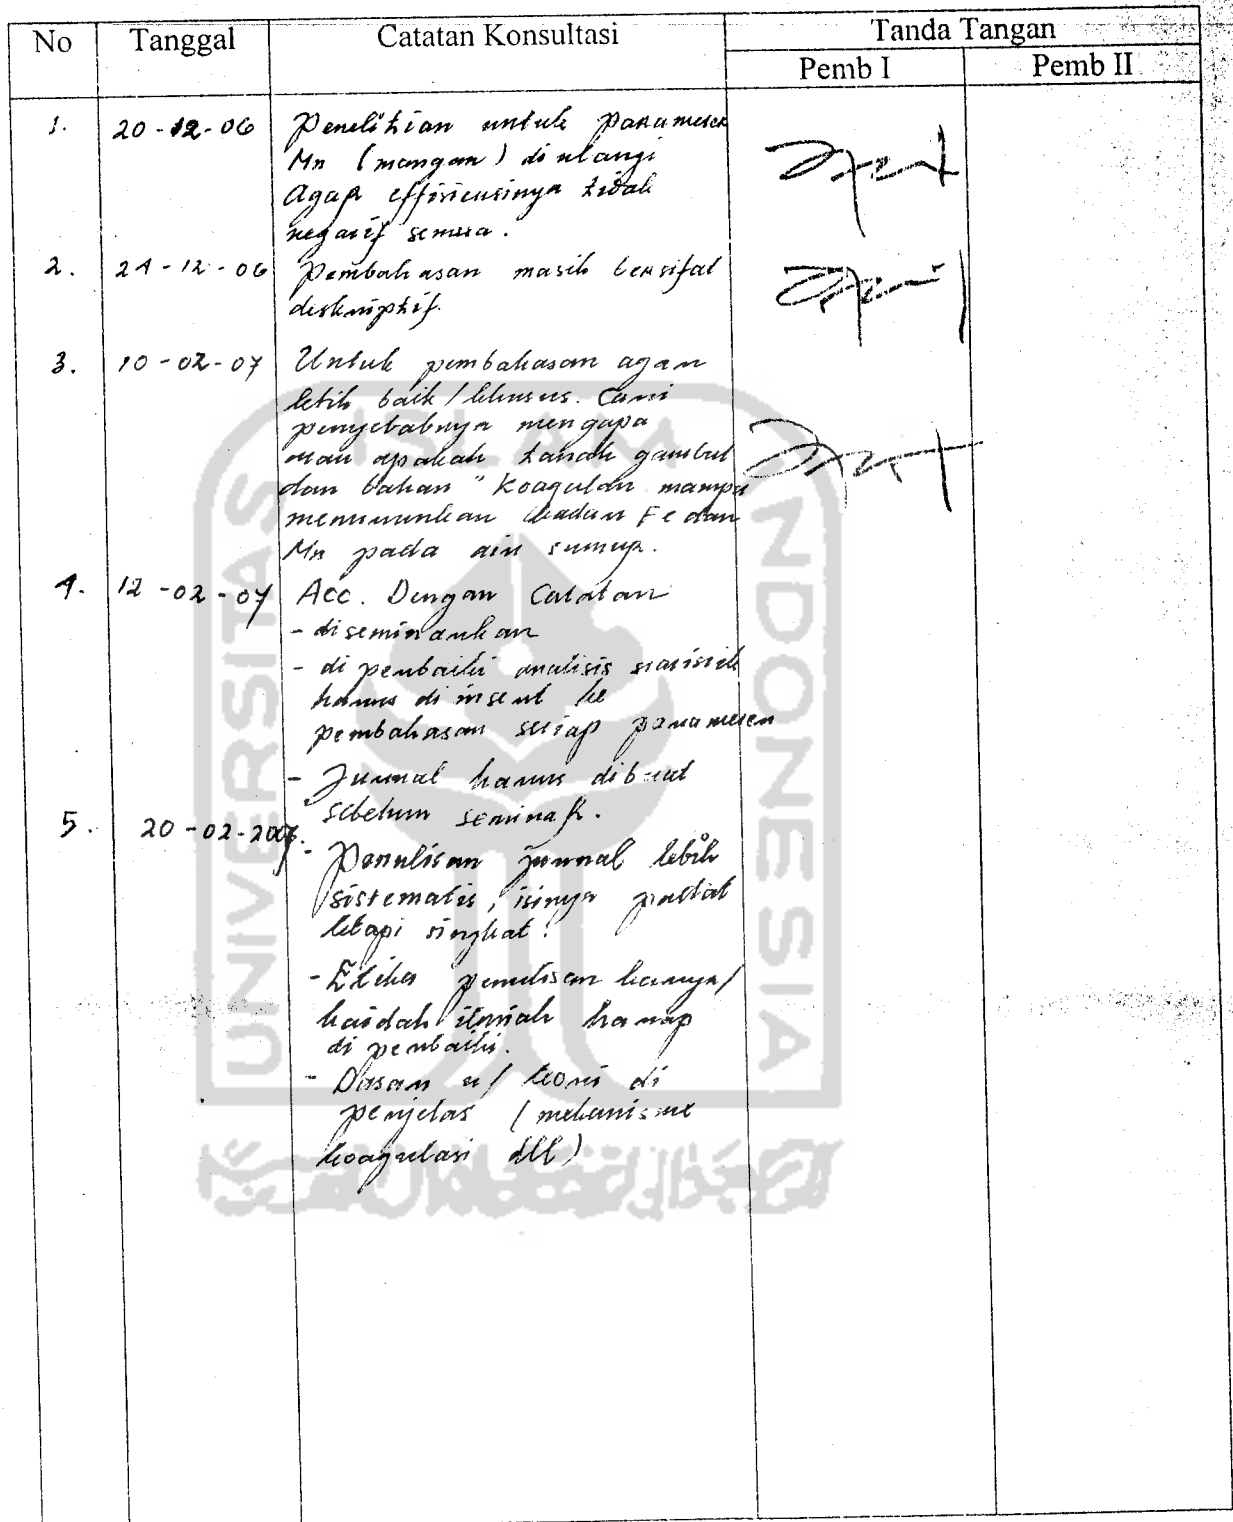 No Tanggal Catatan Konsultasi Tanda Tangan
Pemb I Pemb II
1. 20-12-06 Penelitian untuk parameter
Mn (mangan) di ulangi
agar effisiensinya tidak
negatif semua.
2. 21-12-06 Pembahasan masih bersifat
deskriptif.
3. 10-02-07 Untuk pembahasan agar
lebih baik / khusus. Cari
penyebabnya mengapa
atau apakah tanah gambut
dan bahan " koagulan mampu
menurunkan kadar Fe dan
Mn pada air sumur.
4. 12-02-07 Acc. Dengan Catatan
- di seminarkan
- di perbaiki analisis statistik
harus di insert ke
pembahasan setiap parameter
- Jurnal harus dibuat
sebelum seminar.
5. 20-02-2007.
- Penulisan jurnal lebih
sistematis, isinya padat
tetapi singkat!
- Etika penulisan karya/
kaidah ilmiah harap
di perbaiki.
- Dasar u/ teori di
penjelas (mekanisme
koagulasi dll)
UNIVERSITAS ISLAM INDONESIA